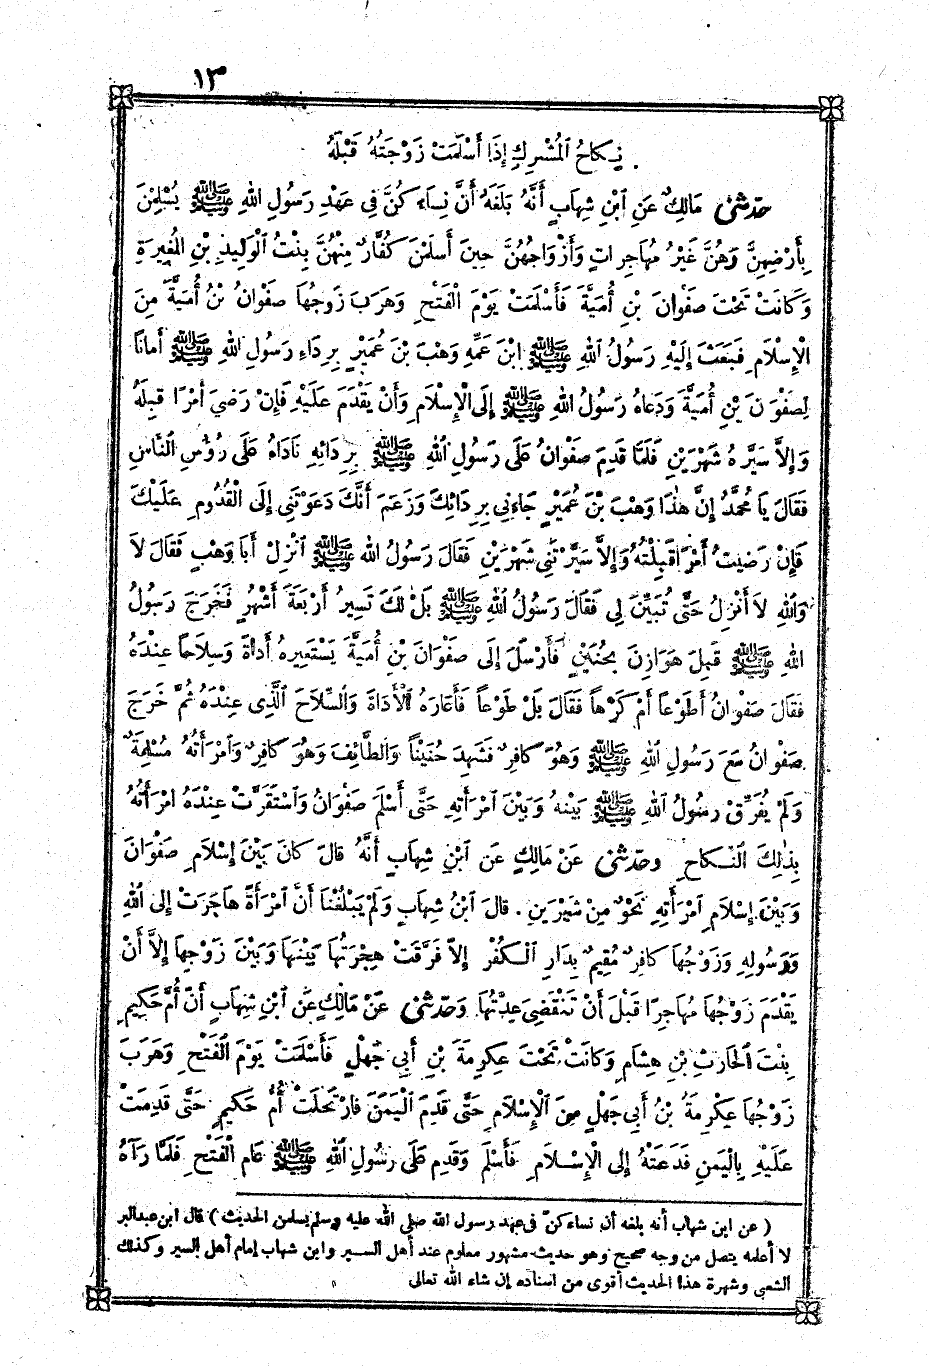 ١٣
نِكَاحُ ٱلْمُشْرِكِ إِذَا أَسْلَمَتْ زَوْجَتُهُ قَبْلَهُ
حدّثنى مَالِكٌ عَنِ ٱبْنِ شِهَابٍ أَنَّهُ بَلَغَهُ أَنَّ نِسَاءً كُنَّ فِى عَهْدِ رَسُولِ ٱللهِ ﷺ يُسْلِمْنَ
بِأَرْضِهِنَّ وَهُنَّ غَيْرُ مُهَاجِرَاتٍ وَأَزْوَاجُهُنَّ حِينَ أَسْلَمْنَ كُفَّارٌ مِنْهُنَّ بِنْتُ ٱلْوَلِيدِ بْنِ ٱلْمُغِيرَةِ
وَكَانَتْ تَحْتَ صَفْوَانَ بْنِ أُمَيَّةَ فَأَسْلَمَتْ يَوْمَ ٱلْفَتْحِ وَهَرَبَ زَوْجُهَا صَفْوَانُ بْنُ أُمَيَّةَ مِنَ
ٱلْإِسْلَامِ فَبَعَثَ إِلَيْهِ رَسُولُ ٱللهِ ﷺ ٱبْنَ عَمِّهِ وَهْبَ بْنَ عُمَيْرٍ بِرِدَاءِ رَسُولِ ٱللهِ ﷺ أَمَانًا
لِصَفْوَانَ بْنِ أُمَيَّةَ وَدَعَاهُ رَسُولُ ٱللهِ ﷺ إِلَى ٱلْإِسْلَامِ وَأَنْ يَقْدَمَ عَلَيْهِ فَإِنْ رَضِيَ أَمْرًا قَبِلَهُ
وَإِلَّا سَيَّرَهُ شَهْرَيْنِ فَلَمَّا قَدِمَ صَفْوَانُ عَلَى رَسُولِ ٱللهِ ﷺ بِرِدَائِهِ نَادَاهُ عَلَى رُؤُسِ ٱلنَّاسِ
فَقَالَ يَا مُحَمَّدُ إِنَّ هٰذَا وَهْبَ بْنَ عُمَيْرٍ جَاءَنِي بِرِدَائِكَ وَزَعَمَ أَنَّكَ دَعَوْتَنِى إِلَى ٱلْقُدُومِ عَلَيْكَ
فَإِنْ رَضِيتُ أَمْرًا قَبِلْتُهُ وَإِلَّا سَيَّرْتَنِى شَهْرَيْنِ فَقَالَ رَسُولُ ٱللهِ ﷺ ٱنْزِلْ أَبَا وَهْبٍ فَقَالَ لَا
وَٱللهِ لَا أَنْزِلُ حَتَّى تُبَيِّنَ لِى فَقَالَ رَسُولُ ٱللهِ ﷺ بَلْ لَكَ تَسِيرُ أَرْبَعَةَ أَشْهُرٍ فَخَرَجَ رَسُولُ
ٱللهِ ﷺ قِبَلَ هَوَازِنَ بِحُنَيْنٍ فَأَرْسَلَ إِلَى صَفْوَانَ بْنِ أُمَيَّةَ يَسْتَعِيرُهُ أَدَاةً وَسِلَاحًا عِنْدَهُ
فَقَالَ صَفْوَانُ أَطَوْعًا أَمْ كَرْهًا فَقَالَ بَلْ طَوْعًا فَأَعَارَهُ ٱلْأَدَاةَ وَٱلسِّلَاحَ ٱلَّذِى عِنْدَهُ ثُمَّ خَرَجَ
صَفْوَانُ مَعَ رَسُولِ ٱللهِ ﷺ وَهُوَ كَافِرٌ فَشَهِدَ حُنَيْنًا وَٱلطَّائِفَ وَهُوَ كَافِرٌ وَٱمْرَأَتُهُ مُسْلِمَةٌ
وَلَمْ يُفَرِّقْ رَسُولُ ٱللهِ ﷺ بَيْنَهُ وَبَيْنَ ٱمْرَأَتِهِ حَتَّى أَسْلَمَ صَفْوَانُ وَٱسْتَقَرَّتْ عِنْدَهُ ٱمْرَأَتُهُ
بِذٰلِكَ ٱلنِّكَاحِ وحدّثنى عَنْ مَالِكٍ عَنِ ٱبْنِ شِهَابٍ أَنَّهُ قَالَ كَانَ بَيْنَ إِسْلَامِ صَفْوَانَ
وَبَيْنَ إِسْلَامِ ٱمْرَأَتِهِ نَحْوٌ مِنْ شَهْرَيْنِ . قَالَ ٱبْنُ شِهَابٍ وَلَمْ يَبْلُغْنَا أَنَّ ٱمْرَأَةً هَاجَرَتْ إِلَى ٱللهِ
وَرَسُولِهِ وَزَوْجُهَا كَافِرٌ مُقِيمٌ بِدَارِ ٱلْكُفْرِ إِلَّا فَرَّقَتْ هِجْرَتُهَا بَيْنَهَا وَبَيْنَ زَوْجِهَا إِلَّا أَنْ
يَقْدَمَ زَوْجُهَا مُهَاجِرًا قَبْلَ أَنْ تَنْقَضِىَ عِدَّتُهَا وحدّثنى عَنْ مَالِكٍ عَنِ ٱبْنِ شِهَابٍ أَنَّ أُمَّ حَكِيمٍ
بِنْتَ ٱلْحَارِثِ بْنِ هِشَامٍ وَكَانَتْ تَحْتَ عِكْرِمَةَ بْنِ أَبِى جَهْلٍ فَأَسْلَمَتْ يَوْمَ ٱلْفَتْحِ وَهَرَبَ
زَوْجُهَا عِكْرِمَةُ بْنُ أَبِى جَهْلٍ مِنَ ٱلْإِسْلَامِ حَتَّى قَدِمَ ٱلْيَمَنَ فَارْتَحَلَتْ أُمُّ حَكِيمٍ حَتَّى قَدِمَتْ
عَلَيْهِ بِٱلْيَمَنِ فَدَعَتْهُ إِلَى ٱلْإِسْلَامِ فَأَسْلَمَ وَقَدِمَ عَلَى رَسُولِ ٱللهِ ﷺ عَامَ ٱلْفَتْحِ فَلَمَّا رَآهُ
( عن ابن شهاب أنه بلغه أن نساء كنّ فى عهد رسول الله صلى الله عليه وسلم يسلمن الحديث ) قال ابن عبد البر
لا أعلمه يتصل من وجه صحيح وهو حديث مشهور معلوم عند أهل السير وابن شهاب إمام أهل السير وكذلك
الشعبى وشهرة هذا الحديث أقوى من اسناده إن شاء الله تعالى